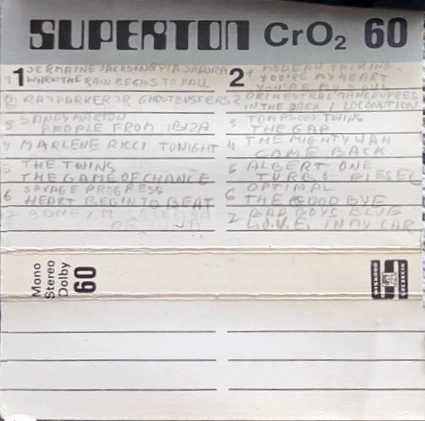 SUPERTON CrO2 60
1 JERMAINE JACKSON PIA ZADORA
WHEN THE RAIN BEGINS TO FALL
2 RAY PARKER JR GHOSTBUSTERS
3 SANDY MARTON
PEOPLE FROM IBIZA
4 MARLENE RICCI TONIGHT
5 THE TWINS
THE GAME OF CHANCE
6 SAVAGE PROGRESS
HEART BEGIN TO BEAT
7 BONEY M
2 1 MODERN TALKING
YOU'RE MY HEART
YOU'RE MY SOUL
2 ORCHESTRAL MANOEUVRES
IN THE DARK / LOCOMOTION
3 TOMPSON TWINS
THE GAP
4 THE MIGHTY WAH
COME BACK
5 ALBERT ONE
TURBO DIESEL
6 OPTIMAL
THE GOOD BYE
7 BAD BOYS BLUE
L.O.V.E. IN MY CAR
Mono
Stereo
Dolby
60
WISKORD
SZCZECIN